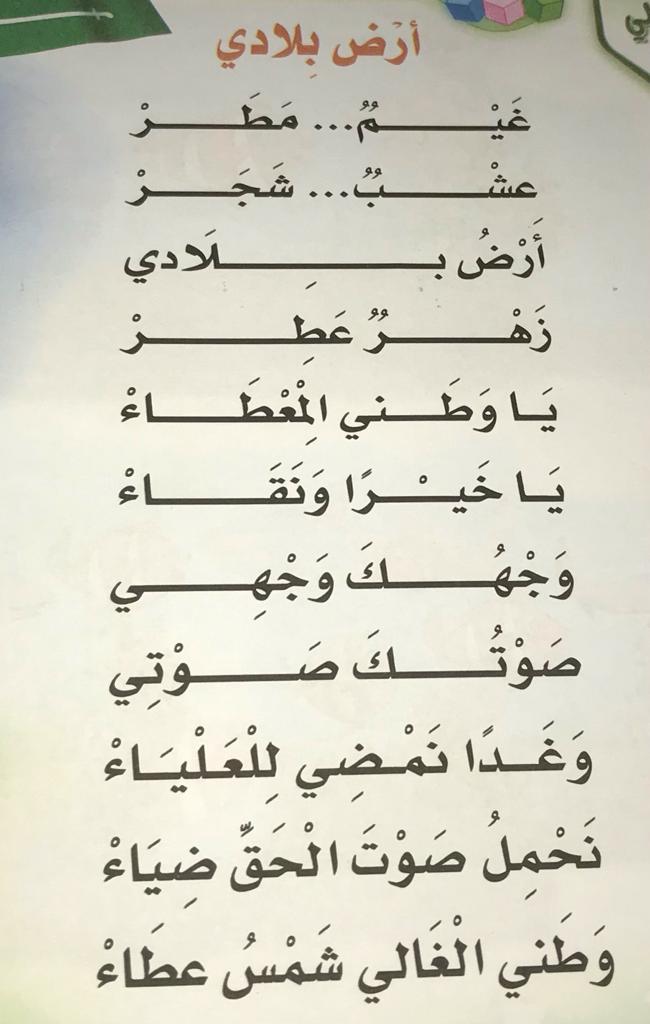 أرْض بِلادي
غَيْـــــمٌ... مَطَـــــرْ
عشْـــــبٌ... شَجَـــــرْ
أَرْضُ بِـــــلَادي
زَهْـــــرٌ عَطِـــــرْ
يَـا وَطَـــني الْمِعْطَـــــاءْ
يَـا خَيْـــرًا وَنَقَـــــاءْ
وَجْهُـــــكَ وَجْهِـــــي
صَوْتُـــــكَ صَـــــوْتِي
وَغَـــدًا نَمْـضِي لِلْعَلْيَـاءْ
نَحْمِلُ صَوْتَ الْحَقِّ ضِيَاءْ
وَطَني الْغَالي شَمْسُ عطَاءْ